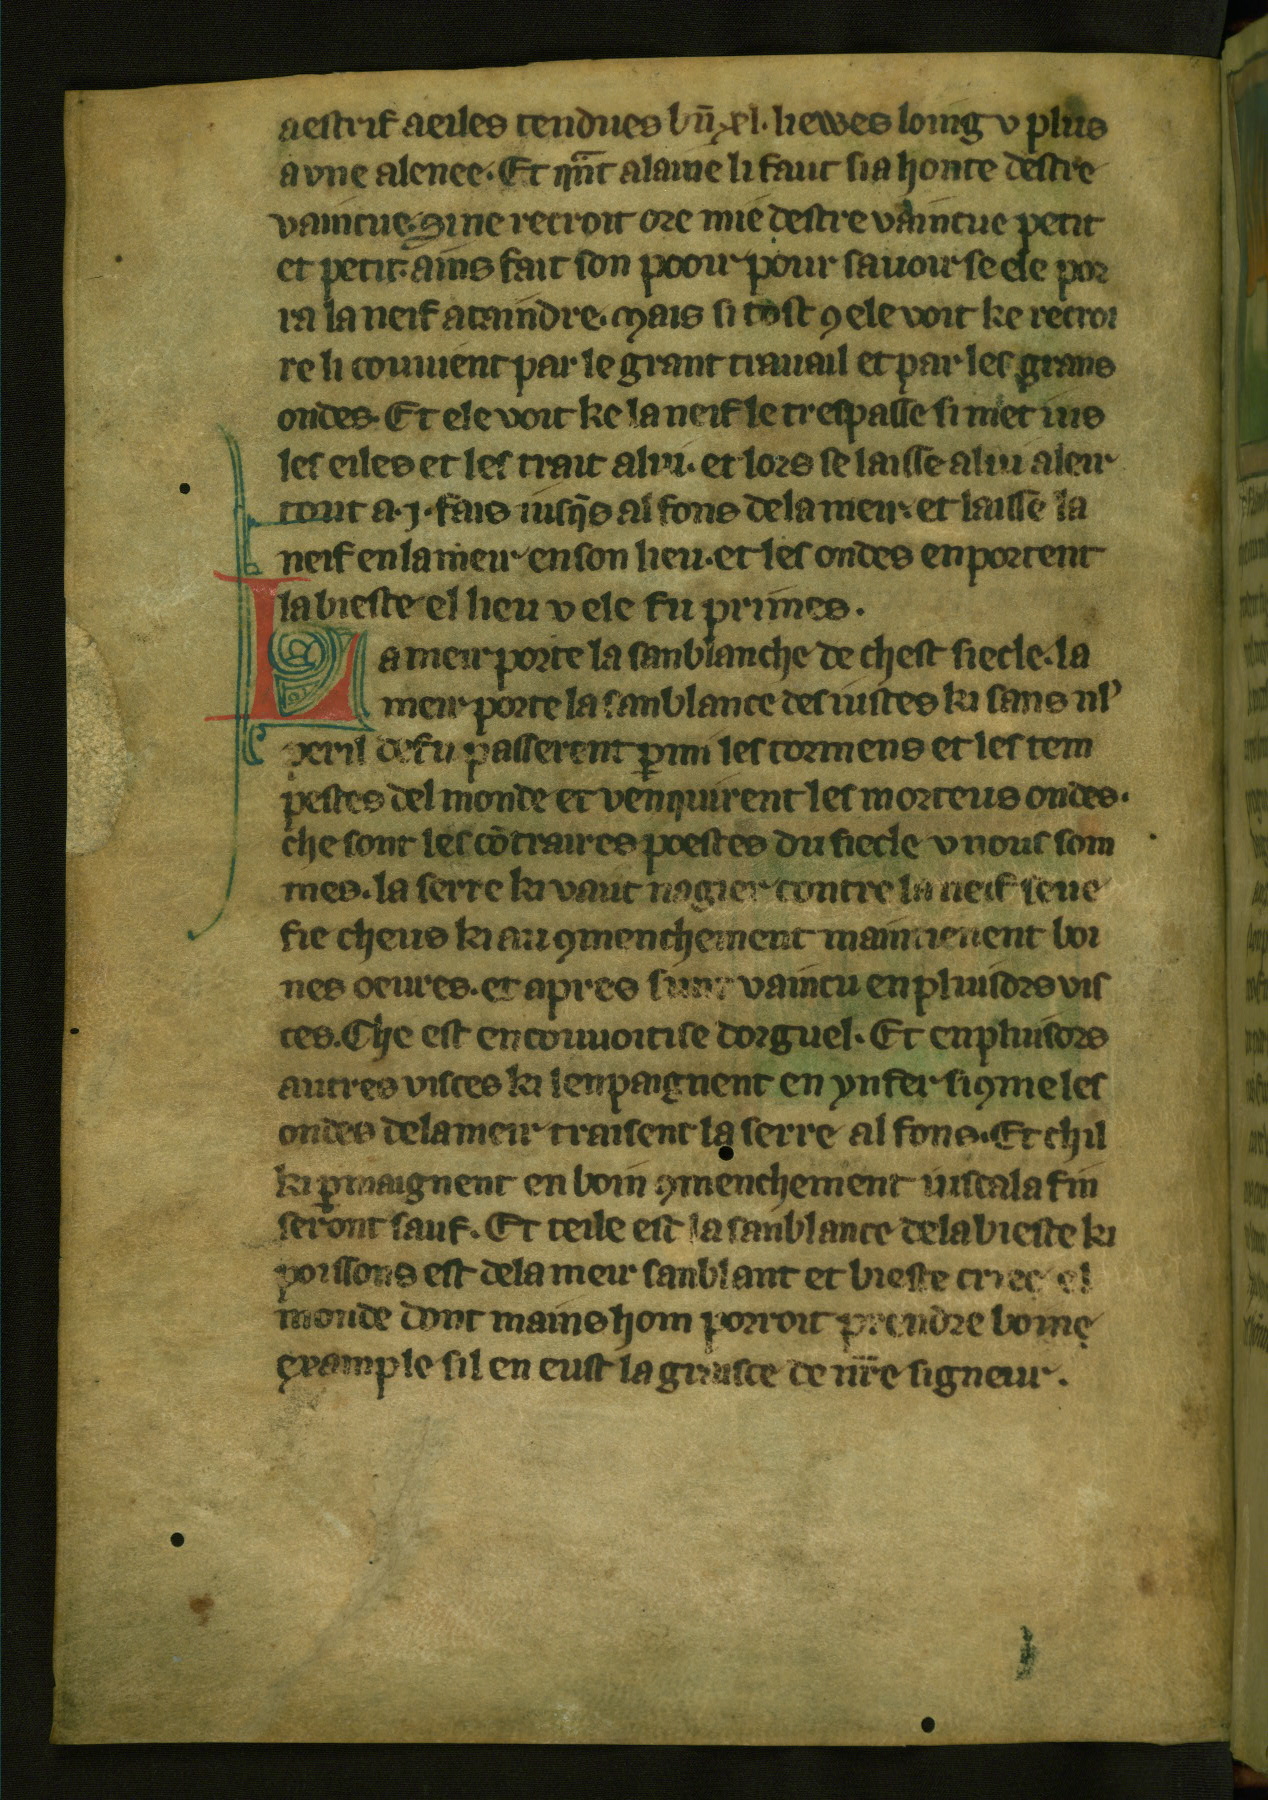 aestrif aeiles tendues bn̄ .xl. liewes loing v plus
a vne alenee. Et qn̄t alaine li faut si a honte destre
vaincue. Si ne recroit ore mie destre vaincue petit
et petit. ains fait son pooir pour sauoir se ele por
ra la neif ataindre. Mais si tost ꝯ ele voit ke recroi
re li couuient par le grant trauail et par les grans
ondes. Et ele voit ke la neif le trespasse si met ius
les eiles et les trait a lui. et lors se laisse a lui aleir
tout a .j. fais iusq̄s al fons de la meir. et laisse la
neif en la meir en son lieu. et les ondes enportent
la bieste el lieu v ele fu primes.
La meir porte la sanblanche de chest siecle. la
meir porte la sanblance des iustes ki sans nl’
peril de fu passerent ꝑmi les tormens et les tem
pestes del monde et venquirent les morteus ondes.
che sont les cōtraires poestes du siecle v nous som
mes. la serre ki vaut nagier contre la neif sene
fie cheus ki au ꝯmenchement maintienent boi
nes oeures. et apres sunt vaincu en pluisors vis
ces. Che est en couuoitise dorguel. Et en pluisors
autres visces ki lenpaignent en ynfer si ꝯme les
ondes de la meir traisent la serre al fons. Et chil
ki ꝑmaignent en boin ꝯmenchement iuscala fin
seront sauf. Et teile est la sanblance de la bieste ki
poissons est de la meir sanblant et bieste criee el
monde dont mains hom porroit prendre boine
example sil en eust la grasce de nr̄e signeur.